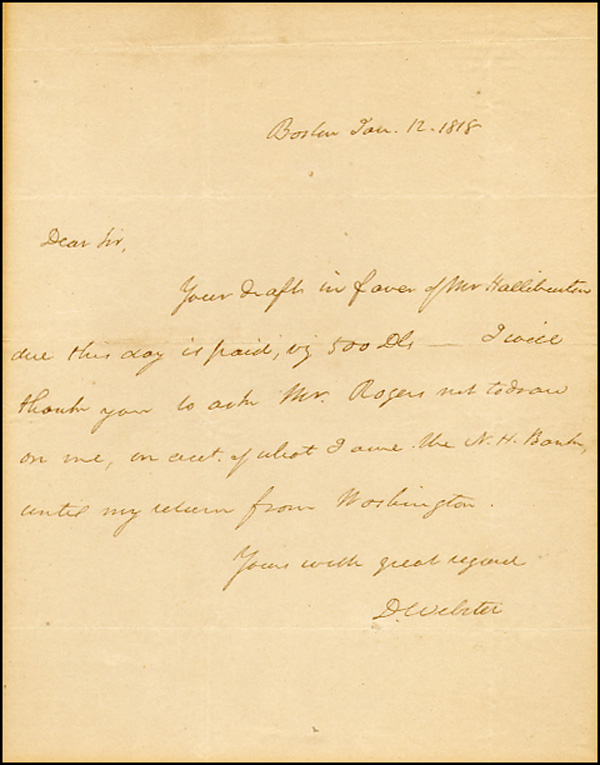 Boston Jan. 12. 1818
Dear Sir,
Your draft in favor of Mr Halliburton
due this day is paid, viz 500 Dls — I will
thank you to ask Mr. Rogers not to draw
on me, on acct. of what I owe the N. H. Bank,
until my return from Washington.
Yours with great regard
D. Webster